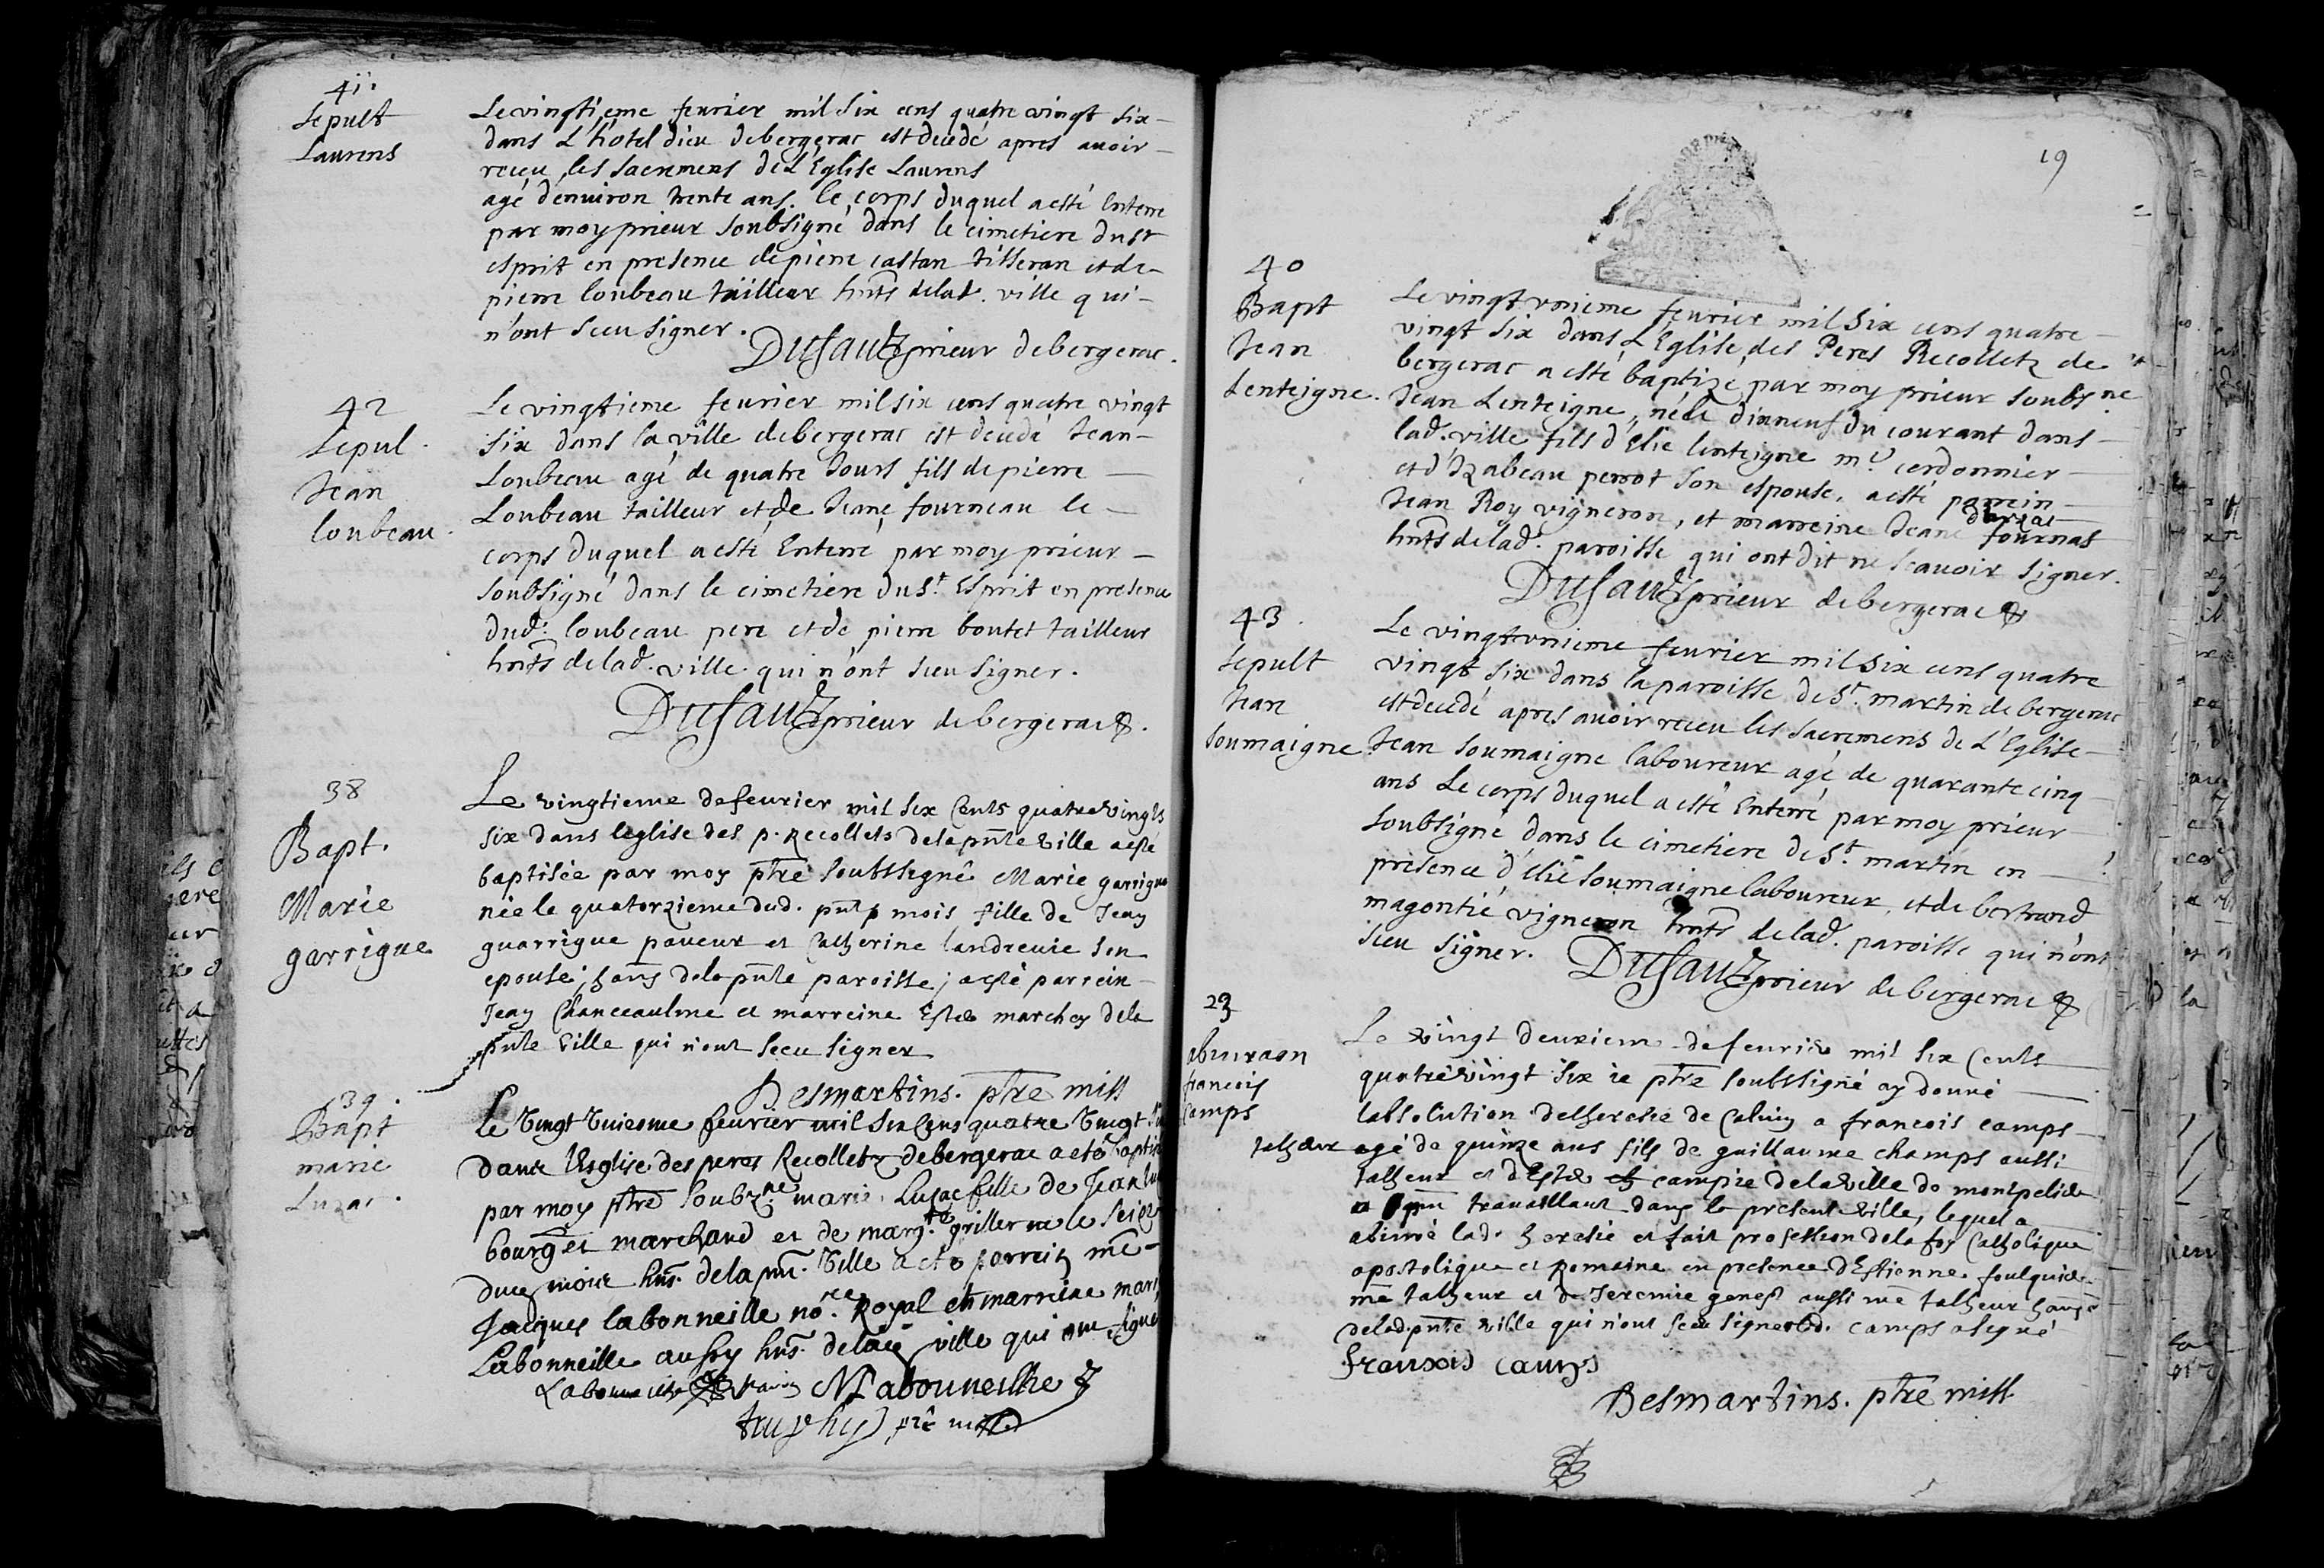 41
Sepult
Laurens
Le vingtieme feurier mil six cens quatre vingt six
dans L'hôtel dieu de bergerac est decedé apres auoir
receu les sacremens de L'Eglise Laurens
agé denuiron trente ans. le corps duquel a esté Enterré
par moy prieur soubsigné dans le cimetiere du st
esprit en presence de pierre castan tisseran et de
pierre loubeau tailleur hnts de lad. ville qui
n'ont sceu signer.
Dusautz prieur de bergerac.
42
Sepul.
Jean
loubeau.
Le vingtieme feurier mil six cens quatre vingt
six dans la ville de bergerac est decedé Jean
Loubeau agé de quatre Jours fils de pierre
Loubeau tailleur et de Jeane fourneau le
corps duquel a esté Enterré par moy prieur
soubsigné dans le cimetiere du St. Esprit en presence
dud. loubeau pere et de pierre boutet tailleur
hnts de lad. ville qui n'ont sceu signer.
Dusautz prieur de bergerac.
38
Bapt.
Marie
garrigue
Le vingtieme de feurier mil six Cents quatre vingts
six dans leglise des p. Recollets de la pnte ville a esté
baptisée par moy ptre soubssigné Marie garrigue
née le quatorzieme dud. pnt mois fille de Jean
guarrigue paueur et Catherine landreuie son
epouse; hans de la pnte paroisse; a esté parrein
Jean Chanceaulme et marreine Ester marchey de la
pnte ville qui n'ont sceu signer
Desmartins. ptre miss
39.
Bapt
marie
Luzac.
Le Vingt Vniesme feurier mil six Cens quatre Vingt
dans l'Esglise des peres Recolletz de bergerac a eté baptisé
par moy ptre soubz.ne marie Lusac fille de Jean
bourg et marchand et de marg.te griller nee le seize
du mois hns. de la pnt. Ville a eté parrein me
Jacques labonneille no.re Royal et marreine marie
Labonneille aussy hns. de la ville qui ont signé
Labonneilhe M Labouneilhe
pre miss
19
40
Bapt
Jean
Lenteigne.
Le vingt vnieme feurier mil six cens quatre
vingt six dans L'Eglise des Peres Recolletz de
bergerac a esté baptizé par moy prieur soubsne
Jean Lenteigne, né le dixneuf du courant dans
lad. ville fils d'Elie lenteigne m.e cordonnier
et d'Izabeau perrot son espouse, a esté parrein
Jean Roy vigneron, et marreine Jeane fournas
hnts de lad. paroisse qui ont dit ne scauoir signer.
Dusautz prieur de bergerac
43.
Sepult
Jean
soumaigne
Le vingt vnieme feurier mil six cens quatre
vingt six dans la paroisse de St. martin de bergerac
est decedé apres auoir receu les sacremens de L'Eglise
Jean soumaigne laboureur agé de quarante cinq
ans Le corps duquel a esté Enterré par moy prieur
soubsigné dans le cimetiere de St. martin en
presence d'Elie soumaigne laboureur, et de bertrand
magontié vigneron hnts de lad. paroisse qui n'ont
sceu signer. Dusautz prieur de bergerac
23
abiuraon
francois
camps
talheur
Le vingt deuxiem de feurier mil six Cents
quatre vingt six ie ptre soubssigné ay donné
labsolution de lheresie de Caluin a francois camps
agé de quinze ans fils de guillaume champs aussi
talheur et d'Ester campire de la ville de montpelier
a pnt trauaillant dans la presente ville, lequel a
abiuré lad. heresie et fait profession de la foy Catholique
apostolique et Romaine en presence d'Estienne foulquier
me talheur et de Jeremie genest aussi me talheur hans
de lad. pnte ville qui n'ont sceu signer led. camps a signé
fransois camps
Desmartins. ptre miss